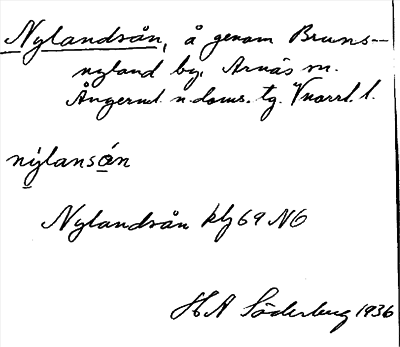 Nylandsån, å genom Bruns-
nyland by, Arnäs sn.
Ångerml. n. doms. tg. Vnorrl. l.
nýlansón
Nylandsån klj 69 NO
H A Söderberg 1936